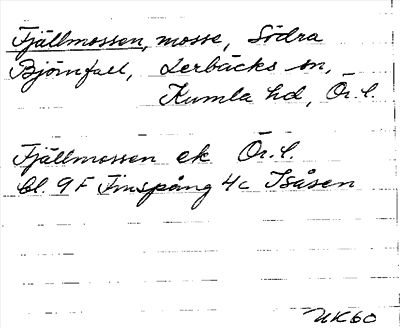 Fjällmossen, mosse, Södra
Björnfall, Lerbäcks sn,
Kumla hd, Ör. l.
Fjällmossen ek Ör. l.
bl. 9F Finspång 4c Isåsen
UK60